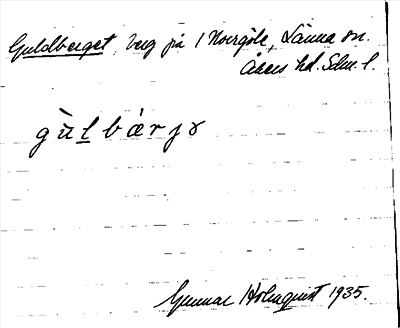 Guldberget, berg på 1 Norrgöle, Länna sn.
Åkers hd. Sdm. l.
gùl bárjɤ
Gunnar Holmquist 1935.